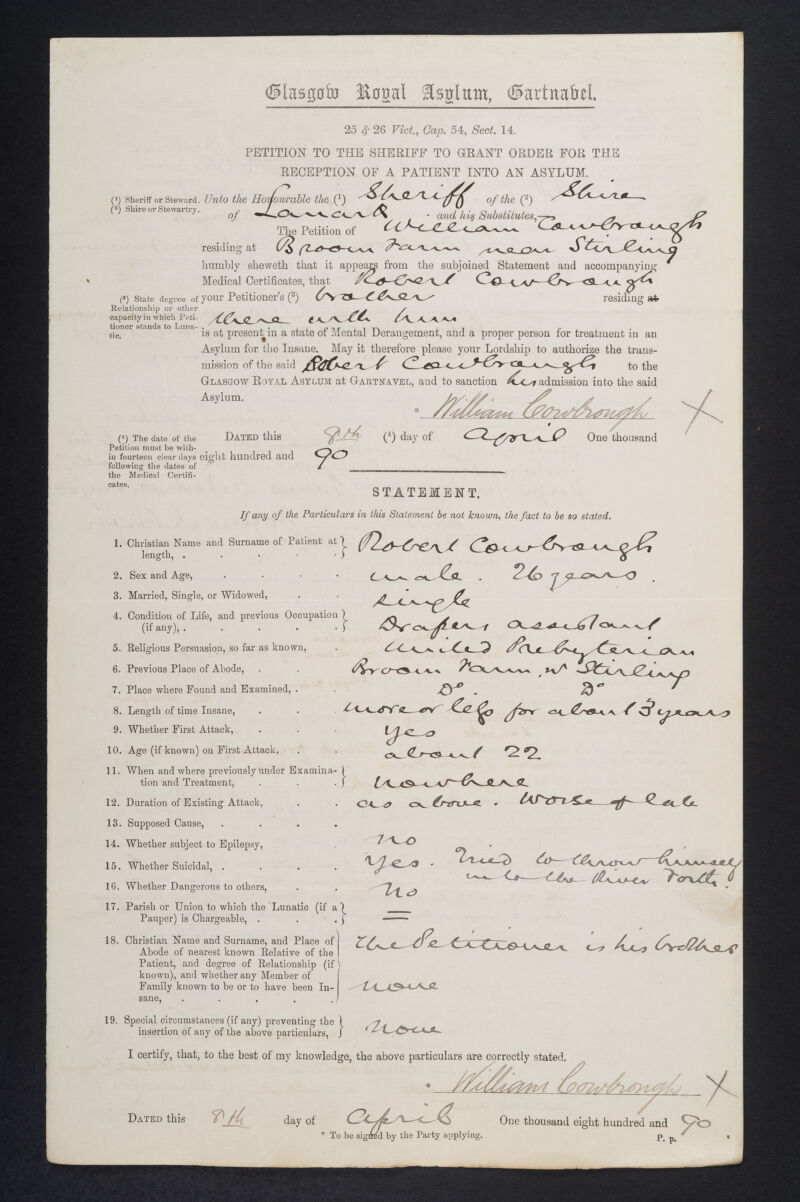 Glasgow Royal Asylum, Gartnavel.
25 & 26 Vict., Cap. 54, Sect. 14.
PETITION TO THE SHERIFF TO GRANT ORDER FOR THE
RECEPTION OF A PATIENT INTO AN ASYLUM.
(¹) Sheriff or Steward. Unto the Honourable the (¹) Sheriff of the (²) Shire
(²) Shire or Stewartry. of Lanark and his Substitutes,—
The Petition of William Cowbrough
residing at Broom Farm near Stirling
humbly sheweth that it appears from the subjoined Statement and accompanying
Medical Certificates, that Robert Cowbrough
(³) State degree of Relationship or other capacity in which Petitioner stands to Lunatic.
your Petitioner's (³) brother residing at
there with him
is at present in a state of Mental Derangement, and a proper person for treatment in an
Asylum for the Insane. May it therefore please your Lordship to authorize the trans-
mission of the said Robert Cowbrough to the
GLASGOW ROYAL ASYLUM AT GARTNAVEL, and to sanction his admission into the said
Asylum.
* William Cowbrough X
(⁴) The date of the Petition must be within fourteen clear days following the dates of the Medical Certificates.
DATED this 8th (⁴) day of April One thousand
eight hundred and 90
STATEMENT.
If any of the Particulars in this Statement be not known, the fact to be so stated.
1. Christian Name and Surname of Patient at length, . Robert Cowbrough
2. Sex and Age, male. 26 years.
3. Married, Single, or Widowed, single
4. Condition of Life, and previous Occupation (if any), . Drapers assistant
5. Religious Persuasion, so far as known, United Presbyterian
6. Previous Place of Abode, Broom Farm, nr Stirling
7. Place where Found and Examined, . Do. Do.
8. Length of time Insane, more or less for about 3 years
9. Whether First Attack, yes
10. Age (if known) on First Attack, about 22
11. When and where previously under Examination and Treatment, nowhere
12. Duration of Existing Attack, as above. Worse of late
13. Supposed Cause,
14. Whether subject to Epilepsy, no
15. Whether Suicidal, . Yes. Tried to throw himself
into the River Forth.
16. Whether Dangerous to others, No
17. Parish or Union to which the Lunatic (if a Pauper) is Chargeable, . =
18. Christian Name and Surname, and Place of Abode of nearest known Relative of the Patient, and degree of Relationship (if known), and whether any Member of Family known to be or to have been Insane, The Petitioner is his brother
none
19. Special circumstances (if any) preventing the insertion of any of the above particulars, none
I certify, that, to the best of my knowledge, the above particulars are correctly stated.
* William Cowbrough X
DATED this 8th day of April One thousand eight hundred and 90
* To be signed by the Party applying.
P. p.